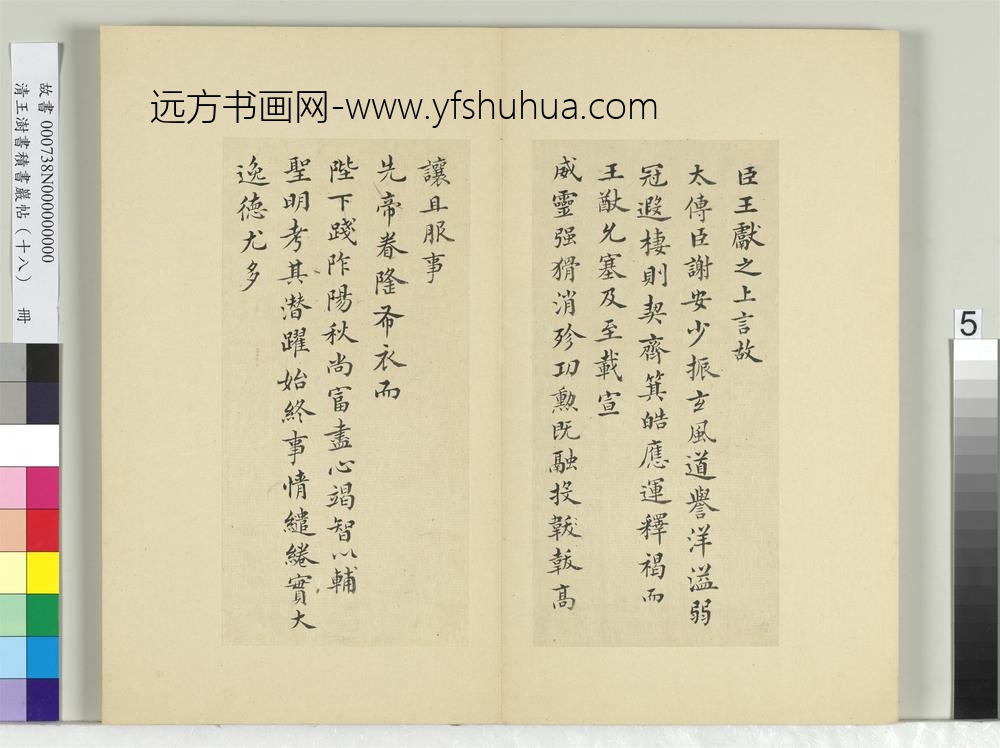 远方书画网-www.yfshuhua.com
故書 000738N000000000
清王澍書積書巖帖（十八） 冊
5
臣王獻之上言故
太傅臣謝安少振玄風道譽洋溢弱
冠遐棲則契齊箕皓應運釋褐而
王猷允塞及至載宣
威靈强猾消殄功勲既融投韍高
讓且服事
先帝眷隆布衣而
陛下踐阼陽秋尚富盡心竭智以輔
聖明考其潛躍始終事情繾綣實大
逸德尤多